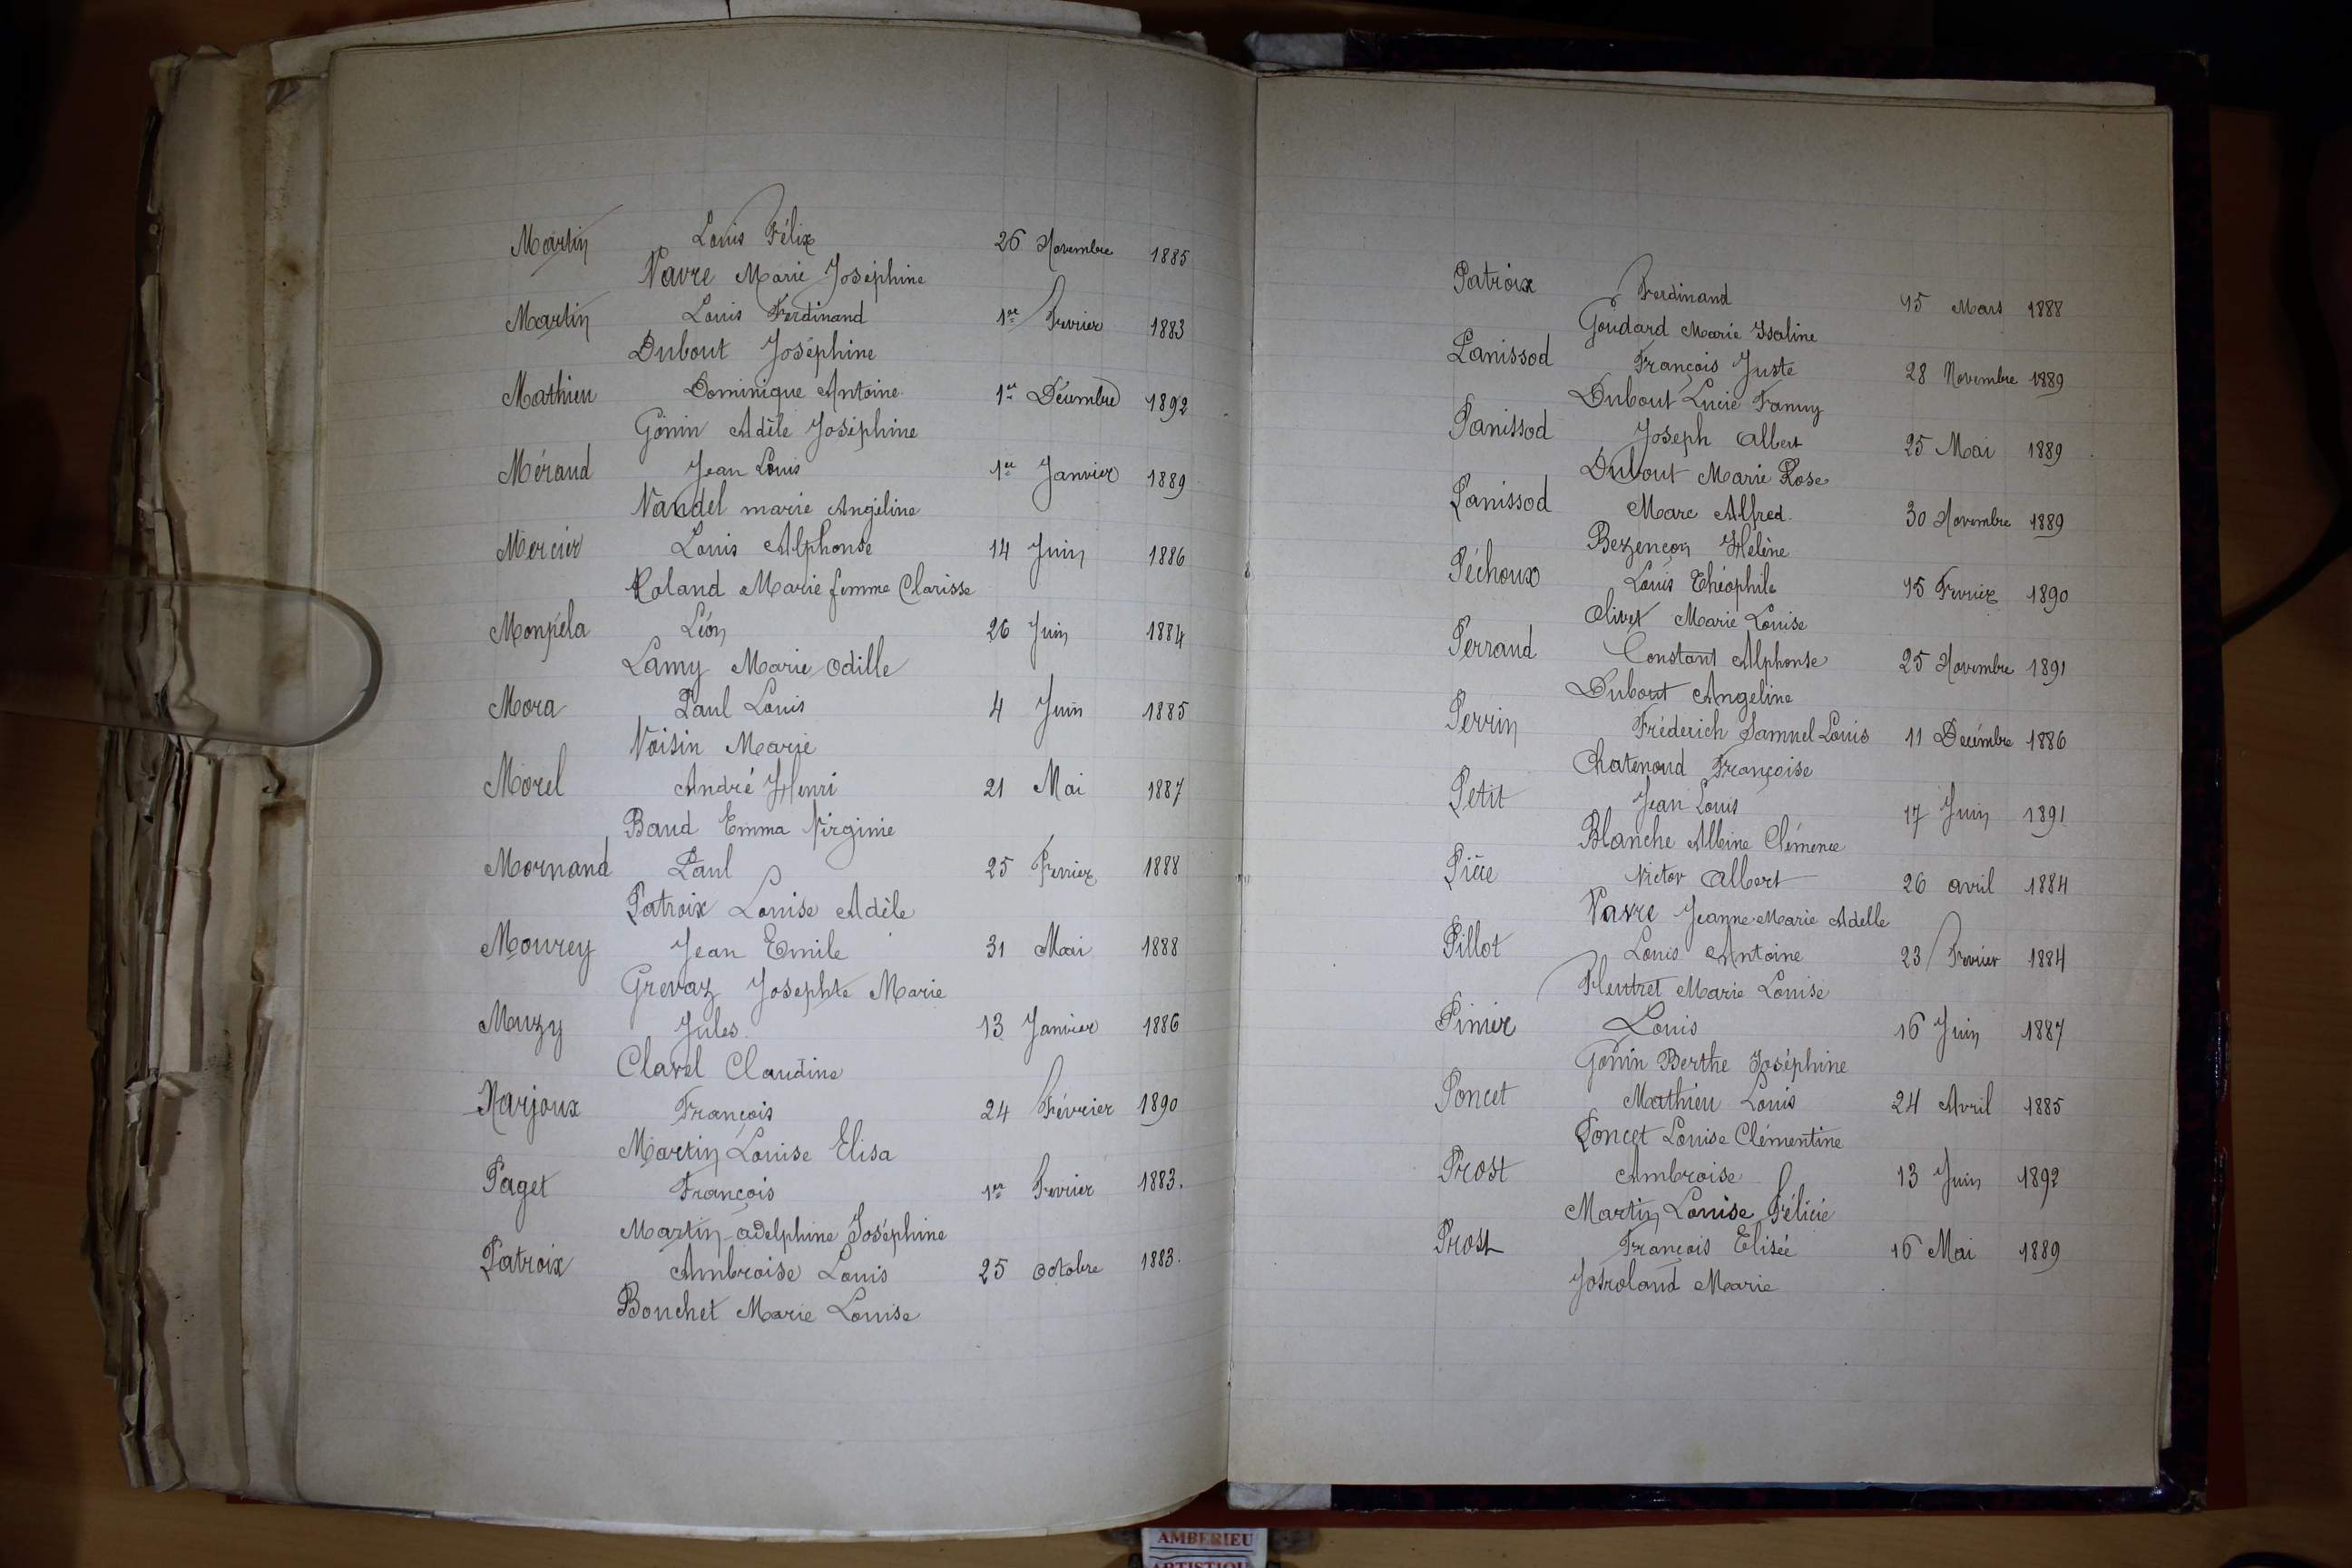 Martin Louis Félix 26 Novembre 1885
Vavre Marie Joséphine
Martin Louis Ferdinand 1er Fevrier 1883
Dubout Joséphine
Mathieu Dominique Antoine 1er Décembre 1892
Gonin Adèle Joséphine
Méraud Jean Louis 1er Janvier 1889
Vandel marie Angéline
Mercier Louis Alphonse 14 Juin 1886
Roland Marie femme Clarisse
Monpéla Léon 26 Juin 1884
Lamy Marie Odille
Mora Paul Louis 4 Juin 1885
Voisin Marie
Morel André Henri 21 Mai 1887
Baud Emma Virginie
Mornand Paul 25 Fevrier 1888
Patroix Louise Adèle
Mourey Jean Emile 31 Mai 1888
Grevaz Josephte Marie
Muzy Jules 13 Janvier 1886
Clavel Claudine
Narjoux François 24 Février 1890
Martin Louise Elisa
Paget François 1er Fevrier 1883.
Martin adelphine Joséphine
Patroix Ambroise Louis 25 octobre 1883.
Bouchet Marie Louise
Patroix Ferdinand 15 Mars 1888
Goudard Marie Isaline
Panissod François Juste 28 Novembre 1889
Dubout Lucie Fanny
Panissod Joseph Albert 25 Mai 1889
Dubout Marie Rose
Panissod Marc Alfred 30 Novembre 1889
Bezençon Hélène
Péchoux Louis Théophile 15 Fevrier 1890
Olivet Marie Louise
Perrand Constant Alphonse 25 Novembre 1891
Dubout Angeline
Perrin Fréderich Samuel Louis 11 Decémbre 1886
Chatenoud Françoise
Petit Jean Louis 17 Juin 1891
Blanche Albine Clémence
Pièce Victor Albert 26 avril 1884
Vavre Jeanne Marie Adelle
Pillot Louis Antoine 23 Fevrier 1884
Fleutret Marie Louise
Pinier Louis 16 Juin 1887
Gonin Berthe Joséphine
Poncet Mathieu Louis 24 Avril 1885
Poncet Louise Clémentine
Prost Ambroise 13 Juin 1892
Martin Louise Félicie
Prost François Elisée 16 Mai 1889
Josroland Marie
AMBERIEU